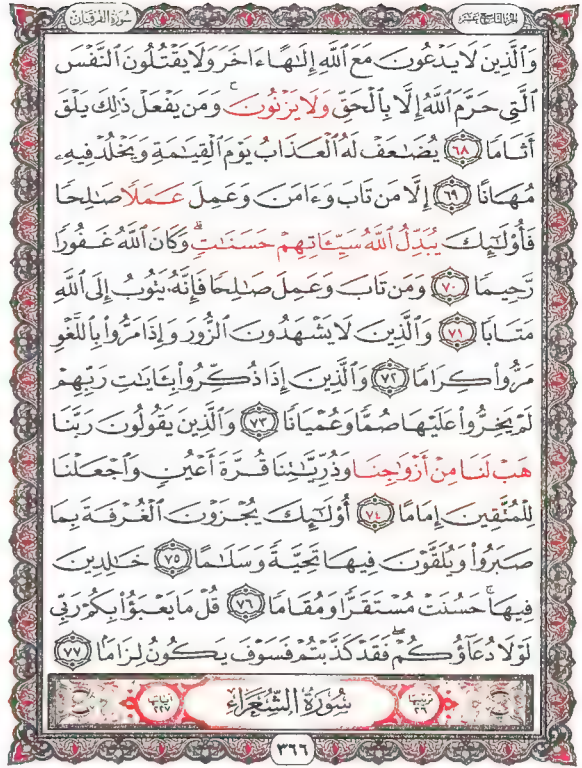 سُورَةُ الفُرقَان
الجزء التاسع عشر
وَالَّذِينَ لَا يَدْعُونَ مَعَ اللَّهِ إِلَـٰهًا ءَاخَرَ وَلَا يَقْتُلُونَ النَّفْسَ
الَّتِى حَرَّمَ اللَّهُ إِلَّا بِالْحَقِّ وَلَا يَزْنُونَ ۚ وَمَن يَفْعَلْ ذَٰلِكَ يَلْقَ
أَثَامًا ٦٨ يُضَـٰعَفْ لَهُ الْعَذَابُ يَوْمَ الْقِيَـٰمَةِ وَيَخْلُدْ فِيهِۦ
مُهَانًا ٦٩ إِلَّا مَن تَابَ وَءَامَنَ وَعَمِلَ عَمَلًا صَـٰلِحًا
فَأُو۟لَـٰٓئِكَ يُبَدِّلُ اللَّهُ سَيِّـَٔاتِهِمْ حَسَنَـٰتٍ ۗ وَكَانَ اللَّهُ غَفُورًا
رَّحِيمًا ٧٠ وَمَن تَابَ وَعَمِلَ صَـٰلِحًا فَإِنَّهُۥ يَتُوبُ إِلَى اللَّهِ
مَتَابًا ٧١ وَالَّذِينَ لَا يَشْهَدُونَ الزُّورَ وَإِذَا مَرُّوا۟ بِاللَّغْوِ
مَرُّوا۟ كِرَامًا ٧٢ وَالَّذِينَ إِذَا ذُكِّرُوا۟ بِـَٔايَـٰتِ رَبِّهِمْ
لَمْ يَخِرُّوا۟ عَلَيْهَا صُمًّا وَعُمْيَانًا ٧٣ وَالَّذِينَ يَقُولُونَ رَبَّنَا
هَبْ لَنَا مِنْ أَزْوَٰجِنَا وَذُرِّيَّـٰتِنَا قُرَّةَ أَعْيُنٍ وَاجْعَلْنَا
لِلْمُتَّقِينَ إِمَامًا ٧٤ أُو۟لَـٰٓئِكَ يُجْزَوْنَ الْغُرْفَةَ بِمَا
صَبَرُوا۟ وَيُلَقَّوْنَ فِيهَا تَحِيَّةً وَسَلَـٰمًا ٧٥ خَـٰلِدِينَ
فِيهَا ۚ حَسُنَتْ مُسْتَقَرًّا وَمُقَامًا ٧٦ قُلْ مَا يَعْبَؤُا۟ بِكُمْ رَبِّى
لَوْلَا دُعَآؤُكُمْ ۖ فَقَدْ كَذَّبْتُمْ فَسَوْفَ يَكُونُ لِزَامًا ٧٧
ترتيبها ٢٦ سُورَةُ الشُّعَرَاءِ آياتها ٢٢٧
٣٦٦